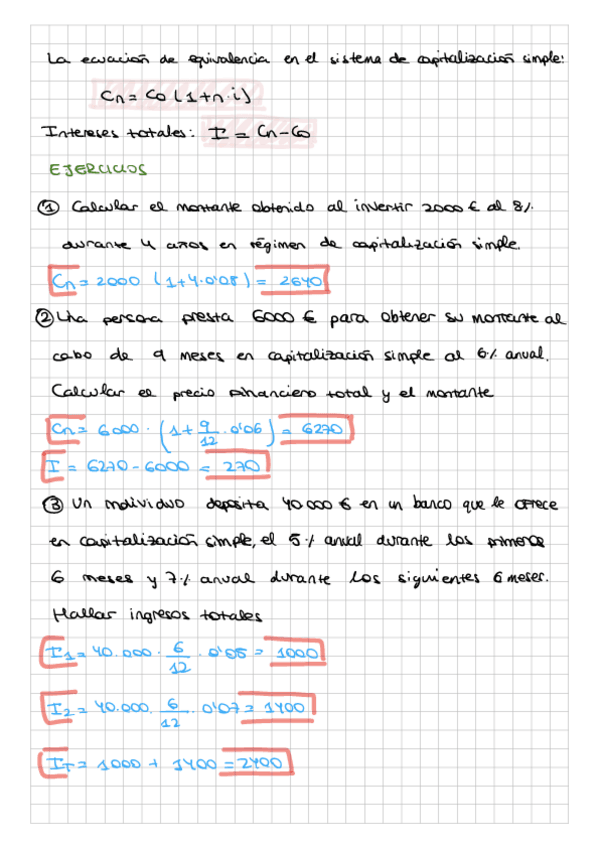 La ecuación de equivalencia en el sistema de capitalización simple:
Cn = Co (1+n·i)
Intereses totales: I = Cn-Co
EJERCICIOS
① Calcular el montante obtenido al invertir 2000 € al 8%
durante 4 años en régimen de capitalización simple.
Cn = 2000 (1+4·0'08) = 2640
② Una persona presta 6000 € para obtener su montante al
cabo de 9 meses en capitalización simple al 6% anual.
Calcular el precio financiero total y el montante
Cn = 6000 · (1 + 9/12 · 0'06) = 6270
I = 6270 - 6000 = 270
③ Un individuo deposita 40000 € en un banco que le ofrece
en capitalización simple, el 5% anual durante los primeros
6 meses y 7% anual durante los siguientes 6 meses.
Hallar ingresos totales
I1 = 40.000 · 6/12 · 0'05 = 1000
I2 = 40.000 · 6/12 · 0'07 = 1400
IT = 1000 + 1400 = 2400